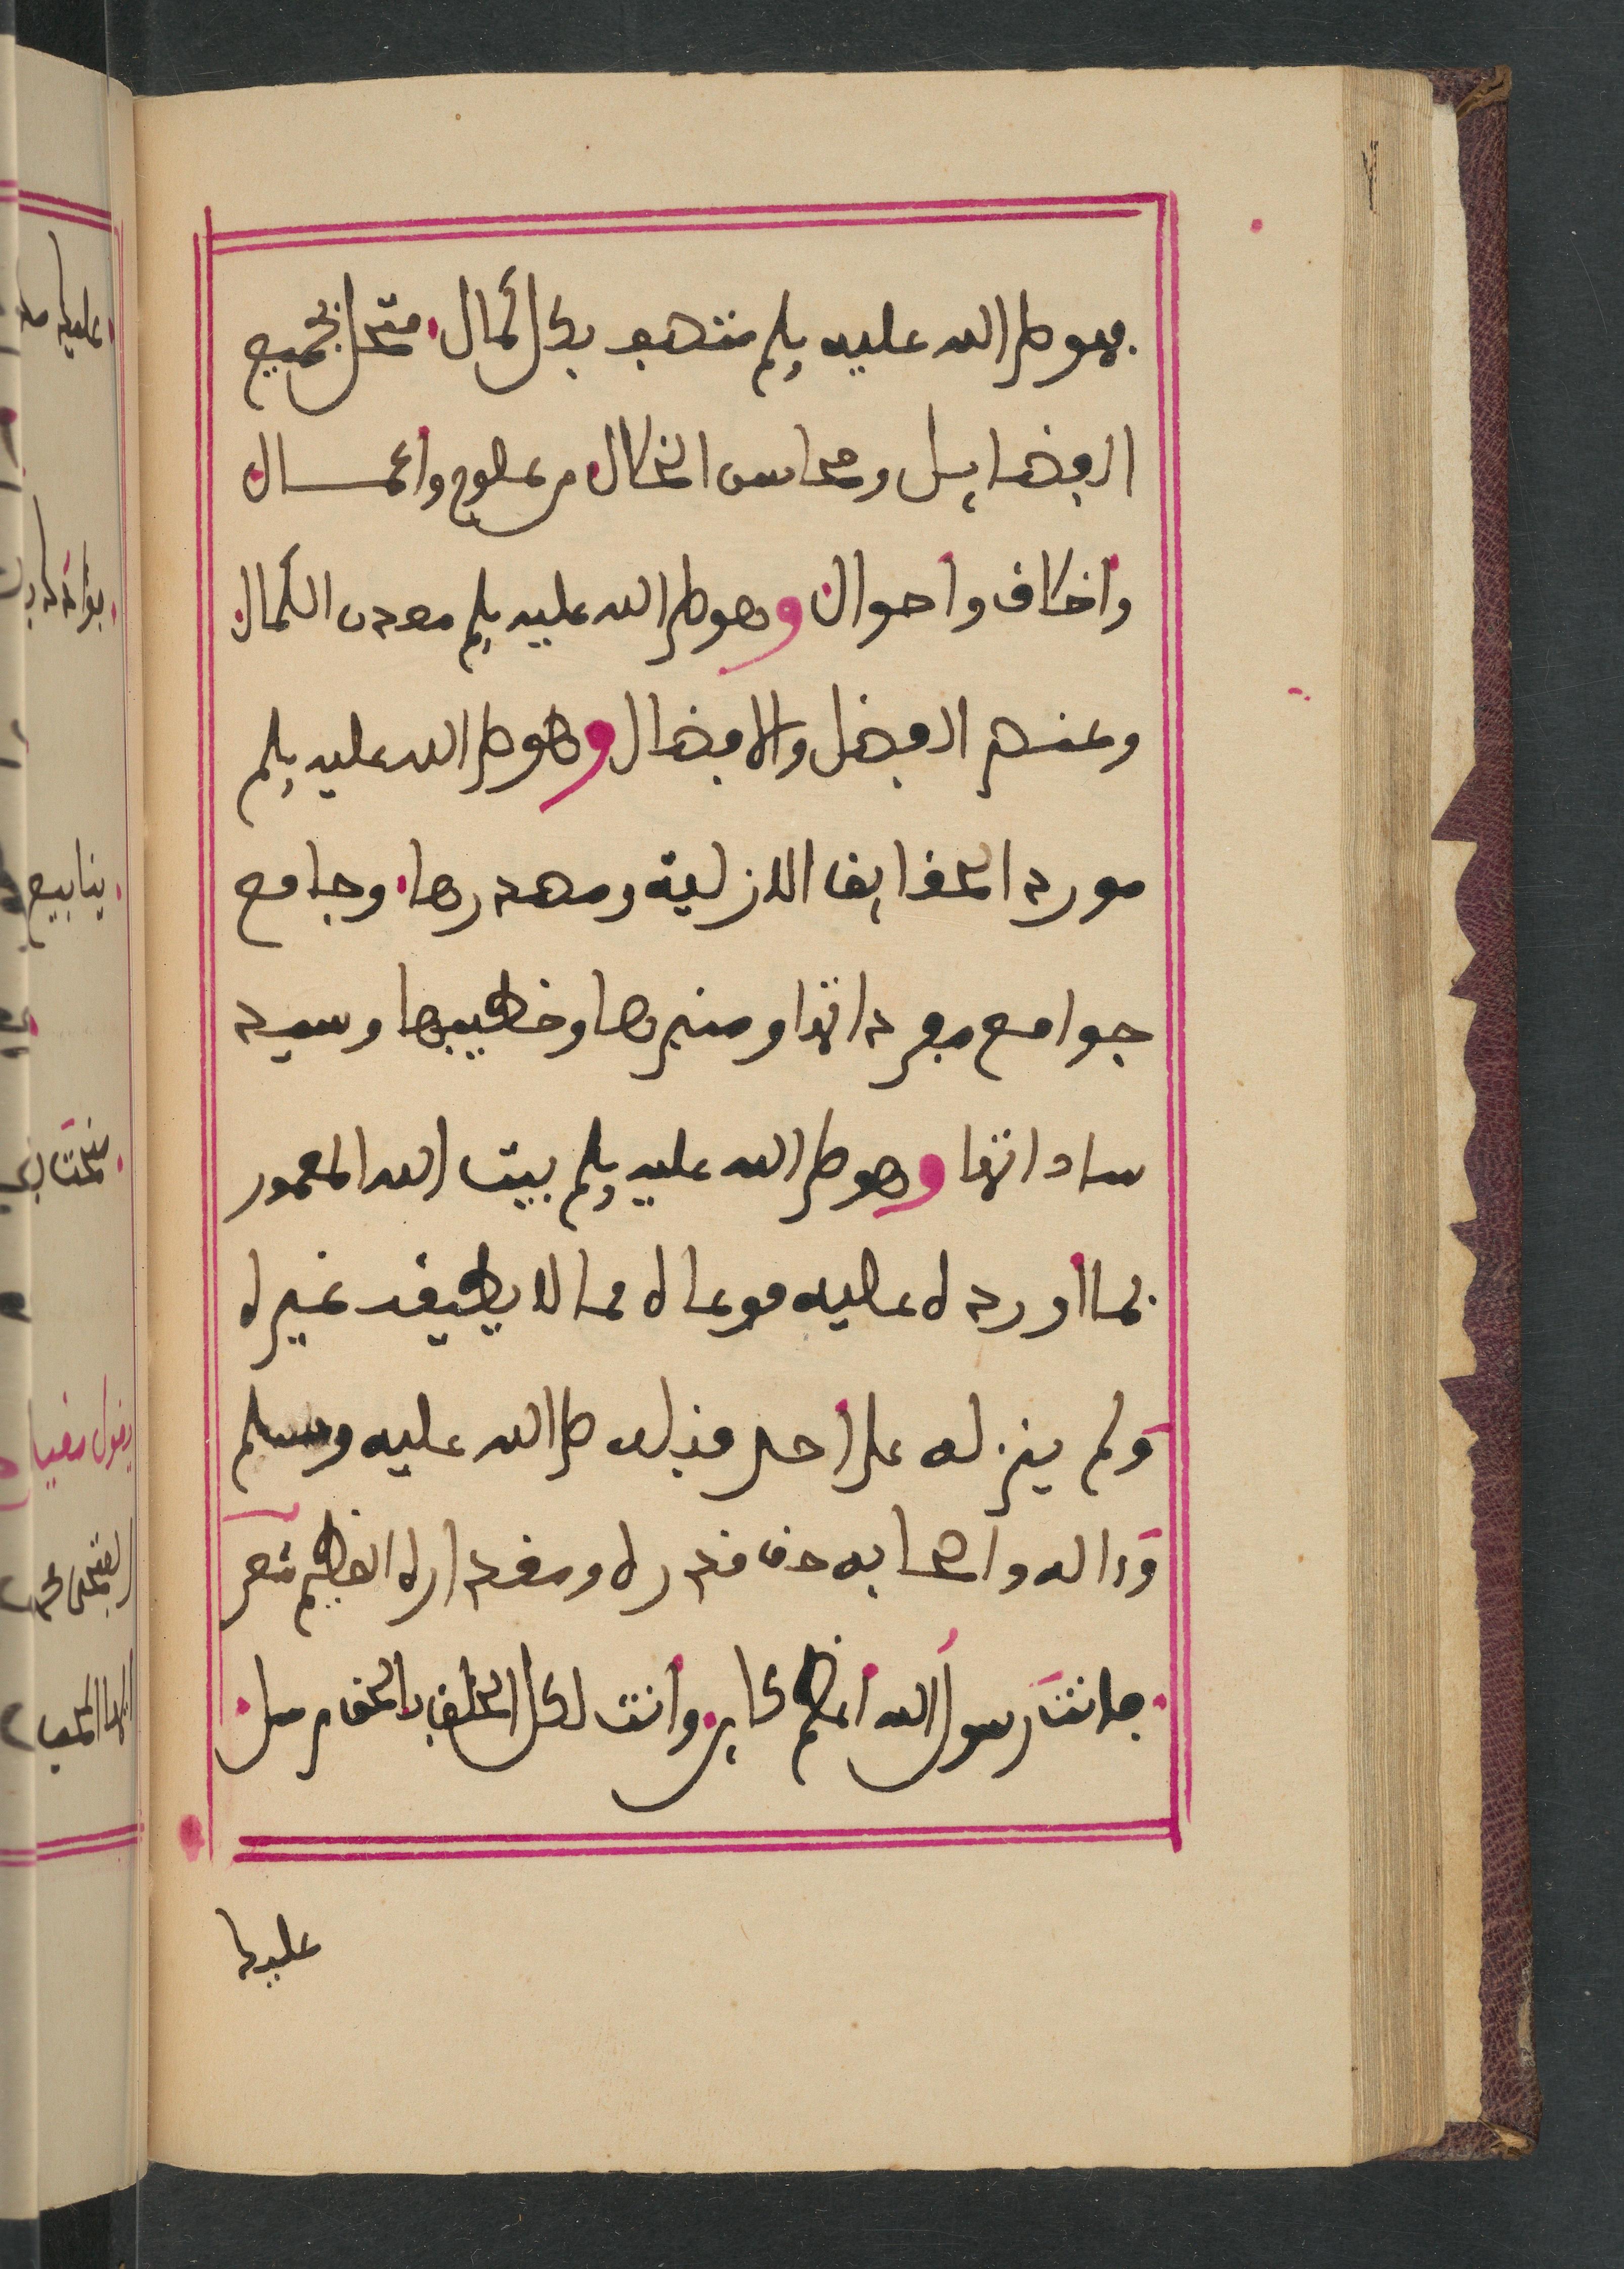 فهو صلى الله عليه وسلم متصف بكل كمال متحل بجميع
الفضايل ومحاسن الخلال من علوم واعمال
واخلاق واحوال وهو صلى الله عليه وسلم معدن الكمال
وعنصر الفضل والافضال وهو صلى الله عليه وسلم
مورد الحقايق الازلية ومصدرها وجامع
جوامع مفرداتها ومنبرها وخطيبها وسيد
ساداتها وهو صلى الله عليه وسلم بيت الله المعمور
بما اورده عليه فوعاه مما لا يطيقه غيره
ولم ينزله على احد قبله صلى الله عليه وسلم
وءاله واصحابه حق قدره ومقداره العظيم شعر
فانت رسول الله اعظم كاين وانت لكل الخلق بالحق مرسل
عليك